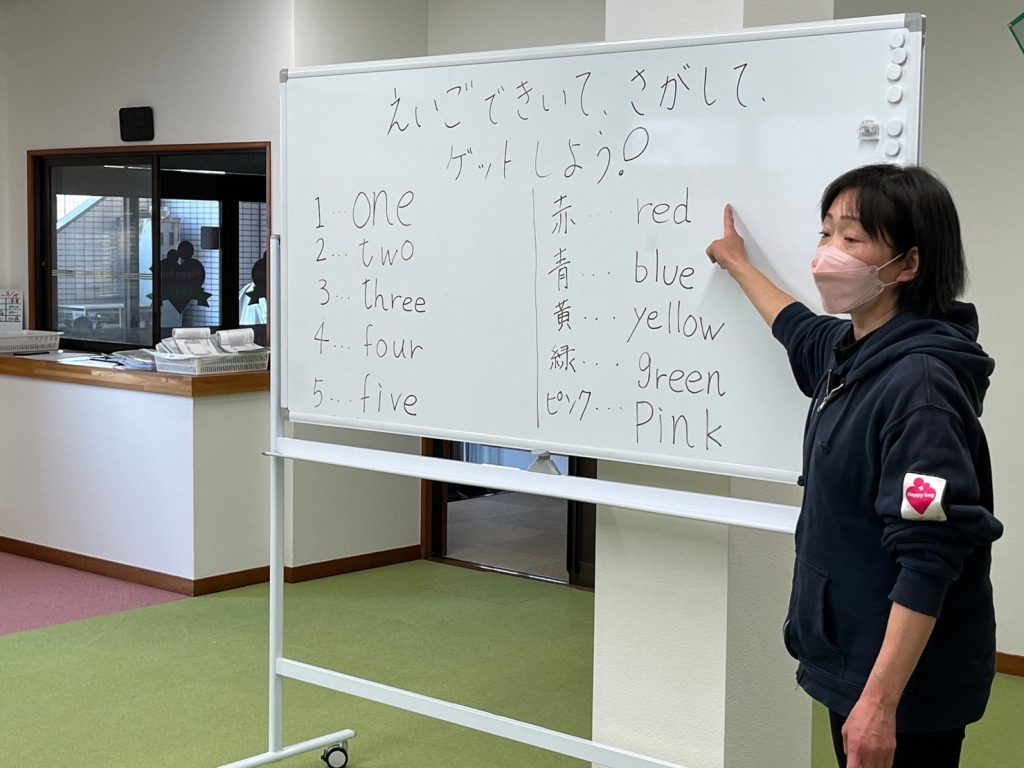 えいごできいて、さがして、
ゲットしよう!
1…one
2…two
3…three
4…four
5…five
赤…red
青…blue
黄…yellow
緑…green
ピンク…Pink
Happy hug
Happy hug